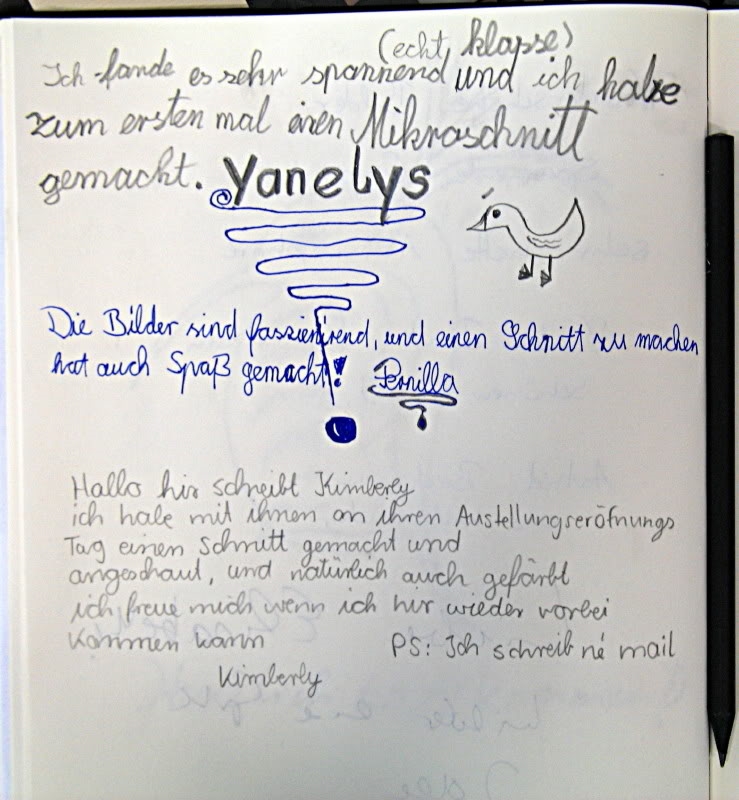 (echt klapse)
Ich fande es sehr spannend und ich habe
zum ersten mal einen Mikroschnitt
gemacht. Yanelys
Die Bilder sind faszinirend, und einen Schnitt zu machen
hat auch Spaß gemacht! Pernilla
Hallo hir schreibt Kimberly
ich habe mit ihnen an ihren Austellungseröfnungs
Tag einen Schnitt gemacht und
angeschaut, und natürlich auch gefärbt
ich freue mich wenn ich hir wieder vorbei
kommen kann
PS: Ich schreib né mail
Kimberly